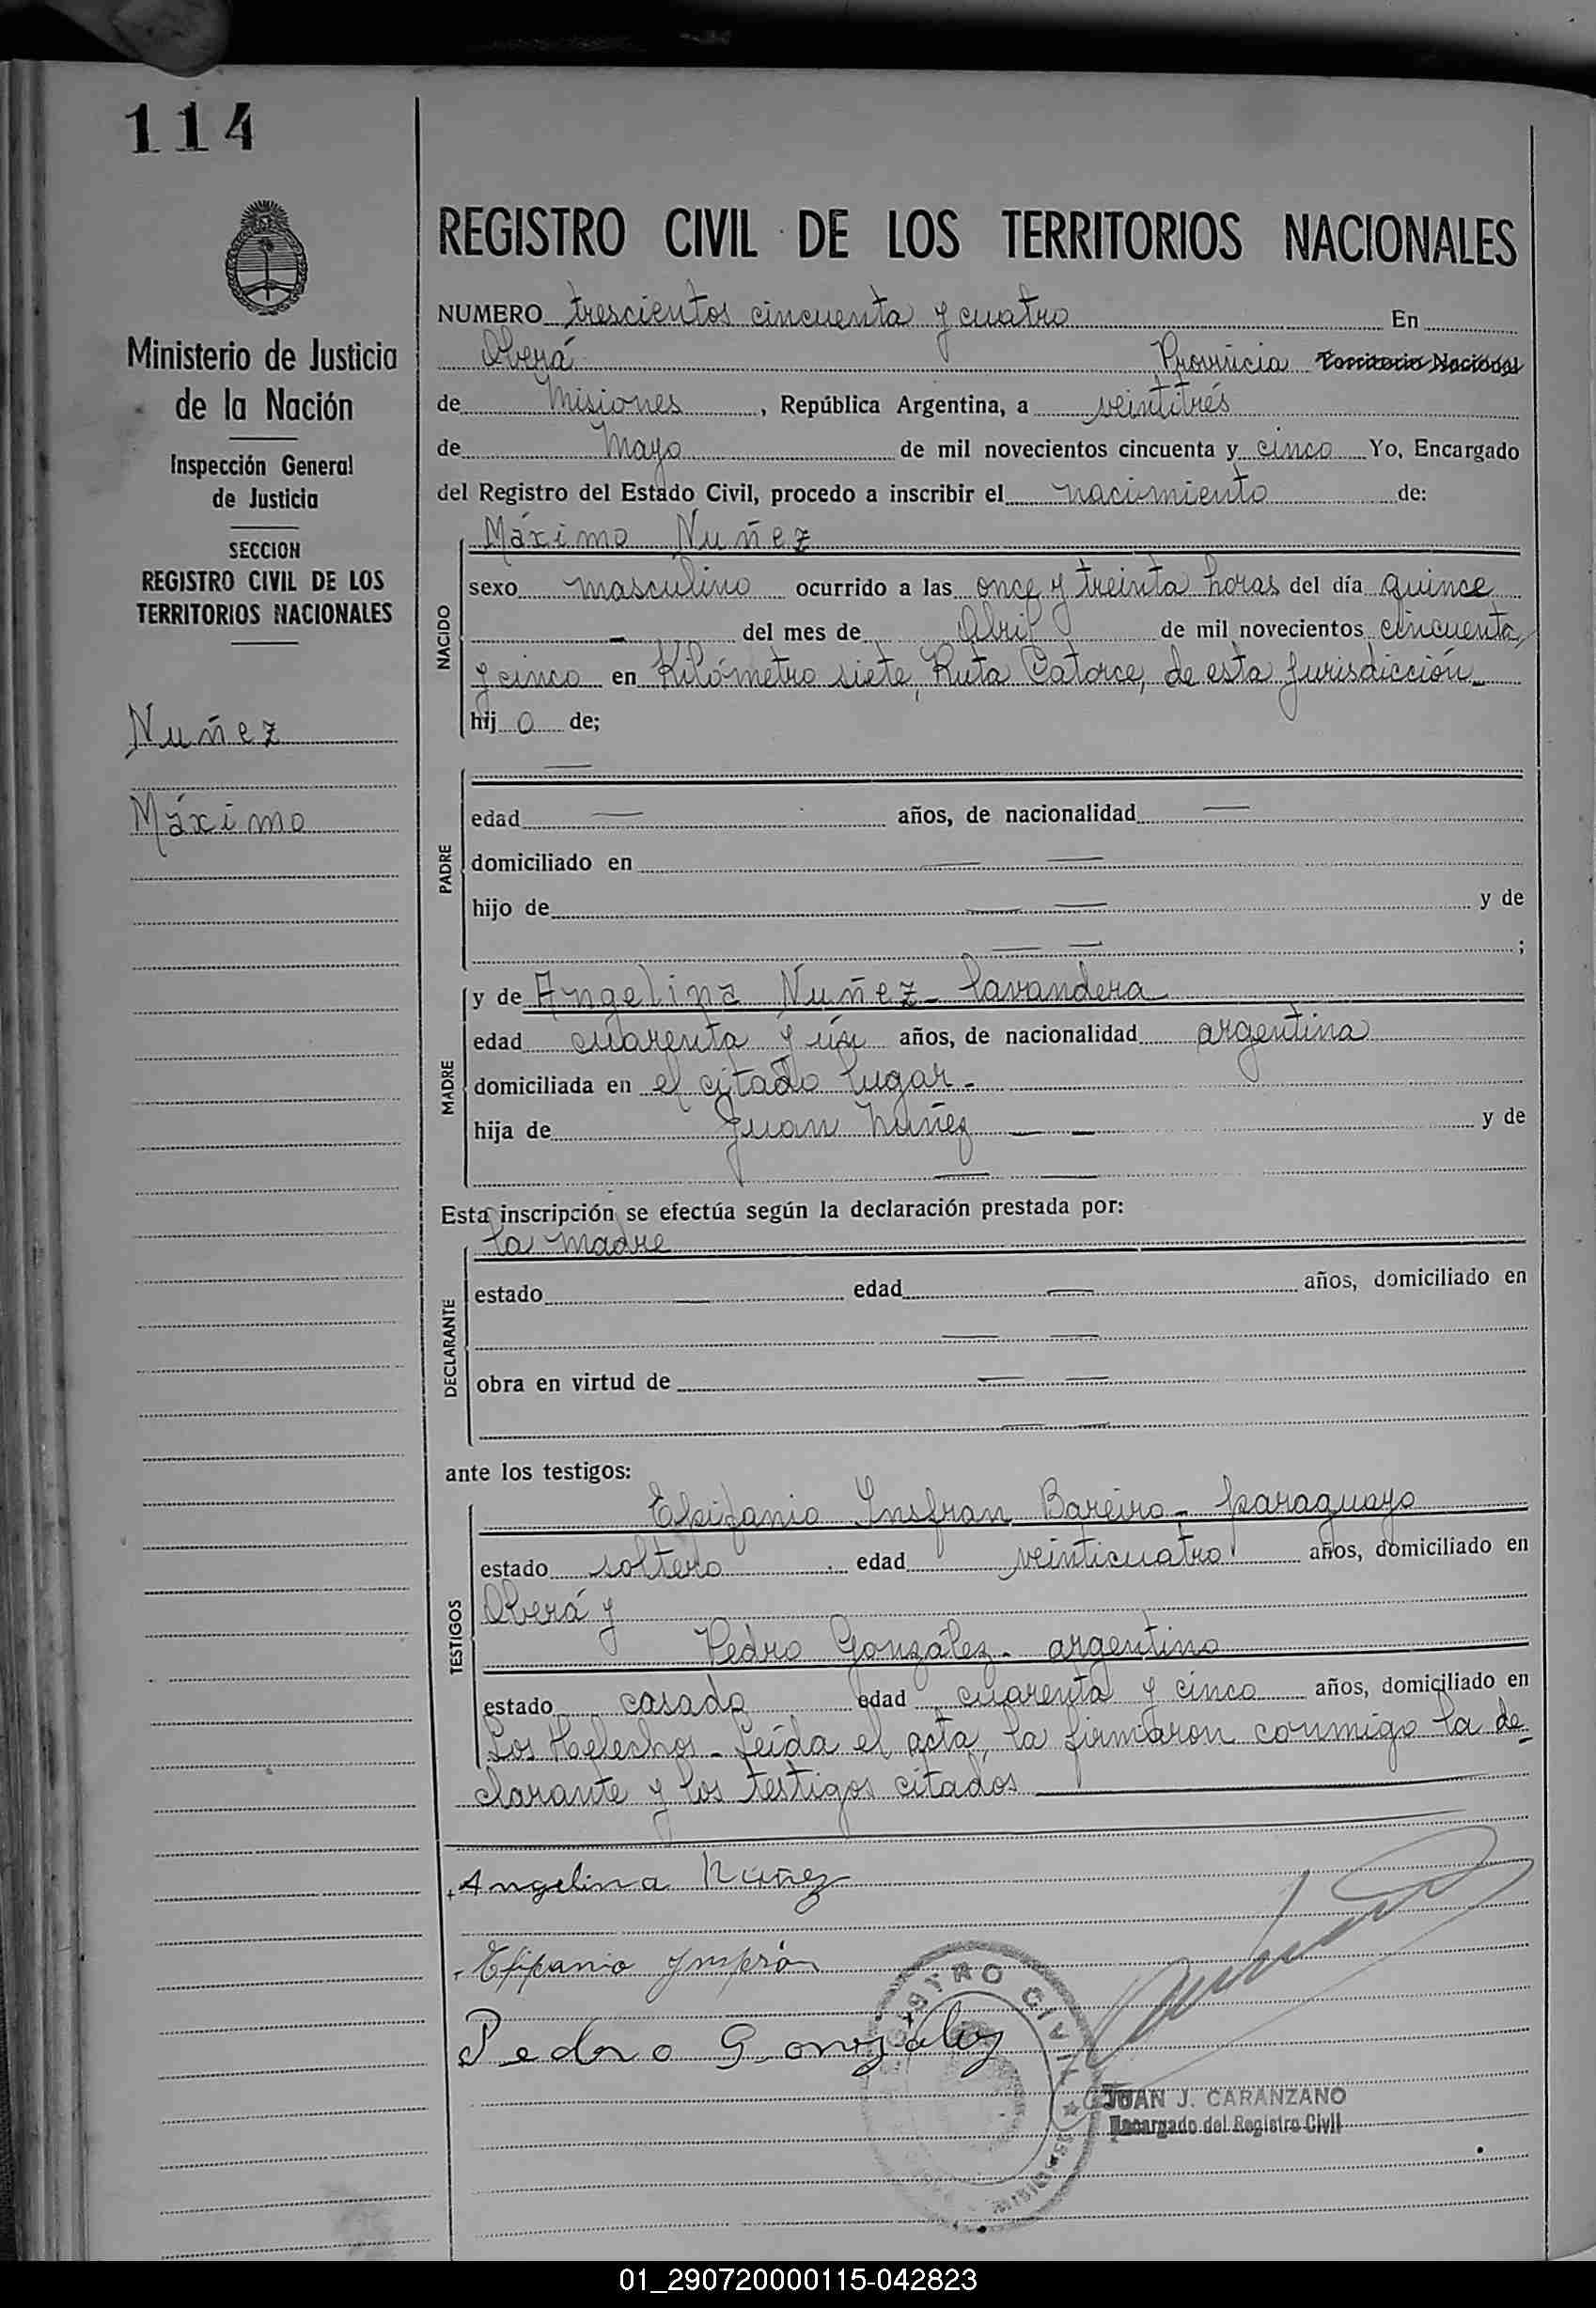 114
REGISTRO CIVIL DE LOS TERRITORIOS NACIONALES
Ministerio de Justicia
de la Nación
Inspección General
de Justicia
SECCION
REGISTRO CIVIL DE LOS
TERRITORIOS NACIONALES
Nuñez
Máximo
NUMERO trescientos cincuenta y cuatro En
Oberá Provincia Territorio Nacional
de Misiones, República Argentina, a veintitrés
de Mayo de mil novecientos cincuenta y cinco Yo, Encargado
del Registro del Estado Civil, procedo a inscribir el nacimiento de:
NACIDO
Máximo Nuñez
sexo masculino ocurrido a las once y treinta horas del día quince
- del mes de Abril de mil novecientos cincuenta
y cinco en Kilómetro siete, Ruta Catorce, de esta jurisdicción_
hij o de;
PADRE
—
edad — años, de nacionalidad —
domiciliado en — —
hijo de — — y de
— — ;
MADRE
y de Angelina Nuñez_ lavandera
edad cuarenta y un años, de nacionalidad argentina
domiciliada en el citado lugar_
hija de Juan Núñez — — y de
— —
Esta inscripción se efectúa según la declaración prestada por:
DECLARANTE
la madre
estado — edad — años, domiciliado en
— —
obra en virtud de — —
— —
ante los testigos:
TESTIGOS
Epifanio Insfran Bareiro_ paraguayo
estado soltero edad veinticuatro años, domiciliado en
Oberá y
Pedro González_ argentino
estado casado edad cuarenta y cinco años, domiciliado en
Los Helechos_ Leída el acta, la firmaron conmigo la de=
clarante y los testigos citados
Angelina Núñez
Pedro González
REGISTRO CIVIL
JUAN J. CARANZANO
Encargado del Registro Civil
01_290720000115-042823